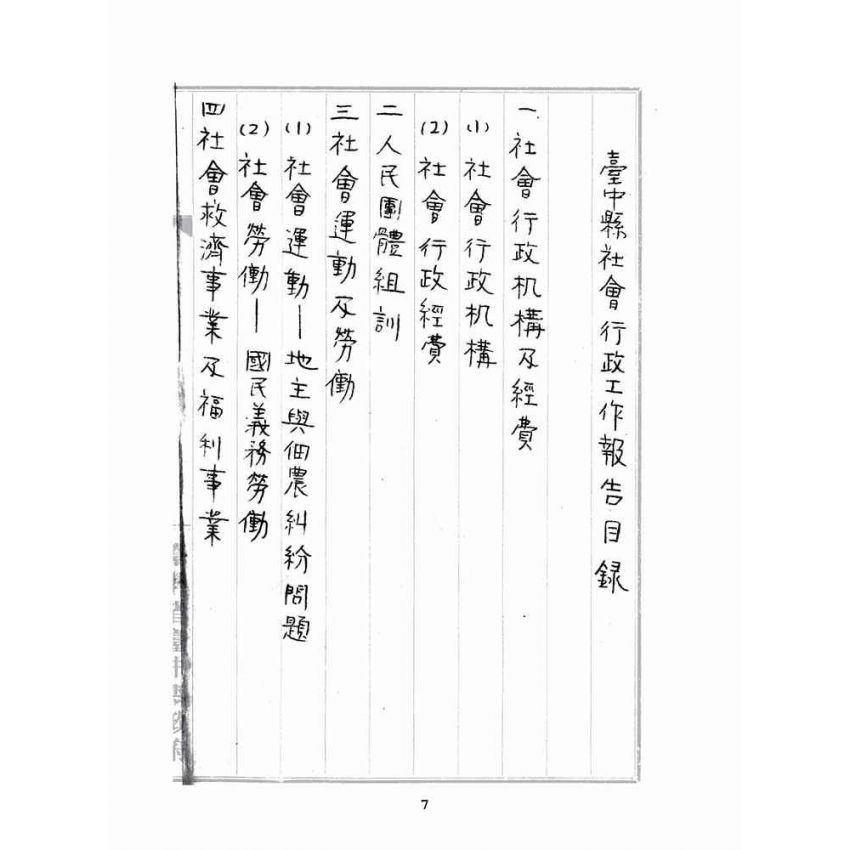 臺中縣社會行政工作報告目録
一 社會行政机構及經費
(1) 社會行政机構
(2) 社會行政經費
二 人民團體組訓
三 社會運動及勞働
(1) 社會運動—地主與佃農糾紛問題
(2) 社會勞働—國民義務勞働
四 社會救濟事業及福利事業
7